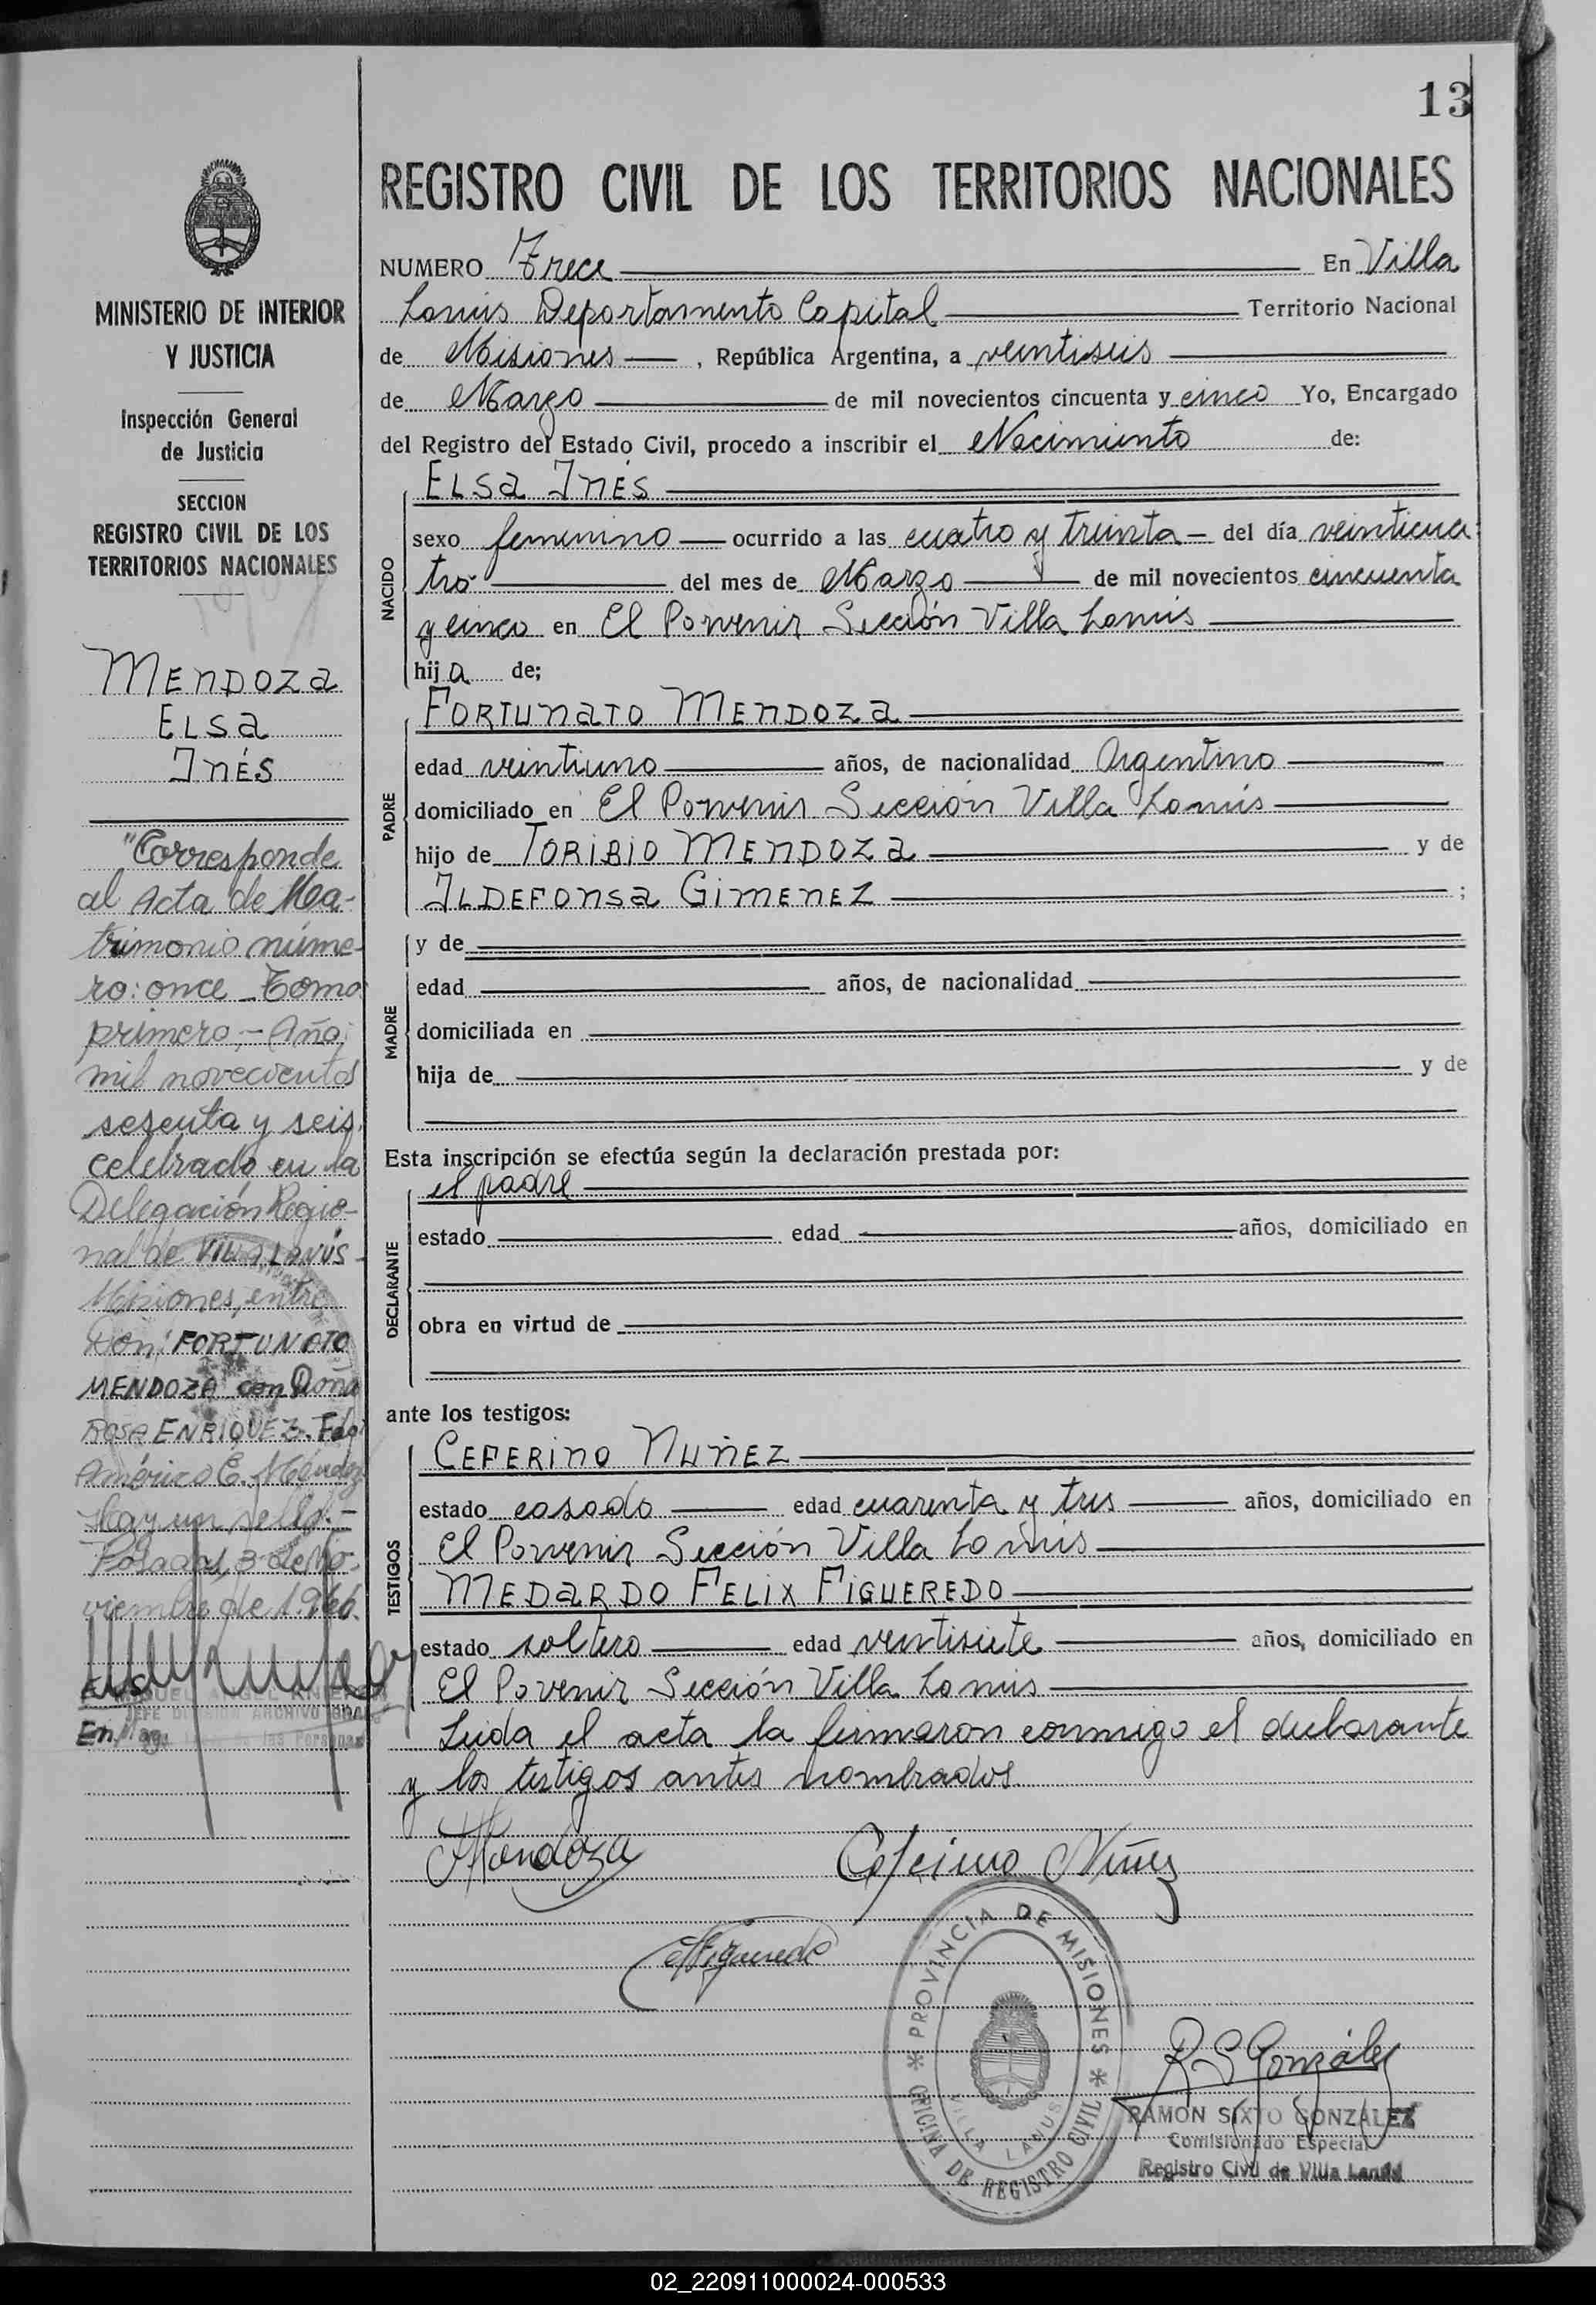 13
REGISTRO CIVIL DE LOS TERRITORIOS NACIONALES
NUMERO Trece En Villa
Lanús Departamento Capital Territorio Nacional
de Misiones , República Argentina, a veintiseis
de Marzo de mil novecientos cincuenta y cinco Yo, Encargado
del Registro del Estado Civil, procedo a inscribir el Nacimiento de:
NACIDO
ELSA INÉS
sexo femenino ocurrido a las cuatro y treinta del día veinticua
tro del mes de Marzo de mil novecientos cincuenta
y cinco en El Porvenir Sección Villa Lanús
hija de;
PADRE
FORTUNATO MENDOZA
edad veintiuno años, de nacionalidad Argentino
domiciliado en El Porvenir Sección Villa Lanús
hijo de TORIBIO MENDOZA y de
ILDEFONSA GIMENEZ ;
MADRE
y de
edad años, de nacionalidad
domiciliada en
hija de y de
Esta inscripción se efectúa según la declaración prestada por:
DECLARANTE
el padre
estado edad años, domiciliado en
obra en virtud de
ante los testigos:
TESTIGOS
CEFERINO NUÑEZ
estado casado edad cuarenta y tres años, domiciliado en
El Porvenir Sección Villa Lanús
MEDARDO FELIX FIGUEREDO
estado soltero edad ventisiete años, domiciliado en
El Povenir Sección Villa Lanus
Leida el acta la firmaron conmigo el declarante
y los testigos antes nombrados
Mendoza
Núñez
Figueredo
PROVINCIA DE MISIONES
OFICINA DE REGISTRO CIVIL
VILLA LANUS
R S González
RAMON SIXTO GONZALEZ
Comisionado Especial
Registro Civil de Villa Lanús
MINISTERIO DE INTERIOR
Y JUSTICIA
Inspección General
de Justicia
SECCION
REGISTRO CIVIL DE LOS
TERRITORIOS NACIONALES
MENDOZA
ELSA
INÉS
"Corresponde
al Acta de Ma-
trimonio núme-
ro: once Tomo
primero,- Año
mil novecientos
sesenta y seis
celebrado en la
Delegación Regio-
nal de VILLA LANÚS
Misiones, entre
Don: FORTUNATO
MENDOZA con Doña
ROSA ENRIQUEZ. Fdo:
Américo E. Méndez
Hay un sello.-
Posadas, 3 de No-
viembre de 1.966.
JEFE DIVISION ARCHIVO
de las Personas
02_220911000024-000533